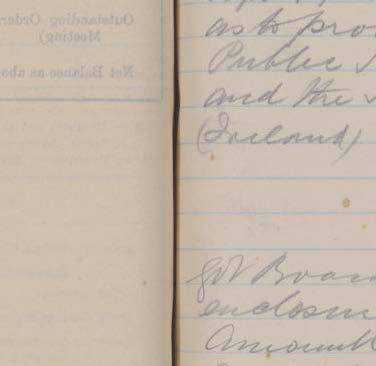 Outstanding Order
Meeting)
Net Balance as abo
as to pro
Public
and the
(Ireland)
Got Boar
enclosin
Amount